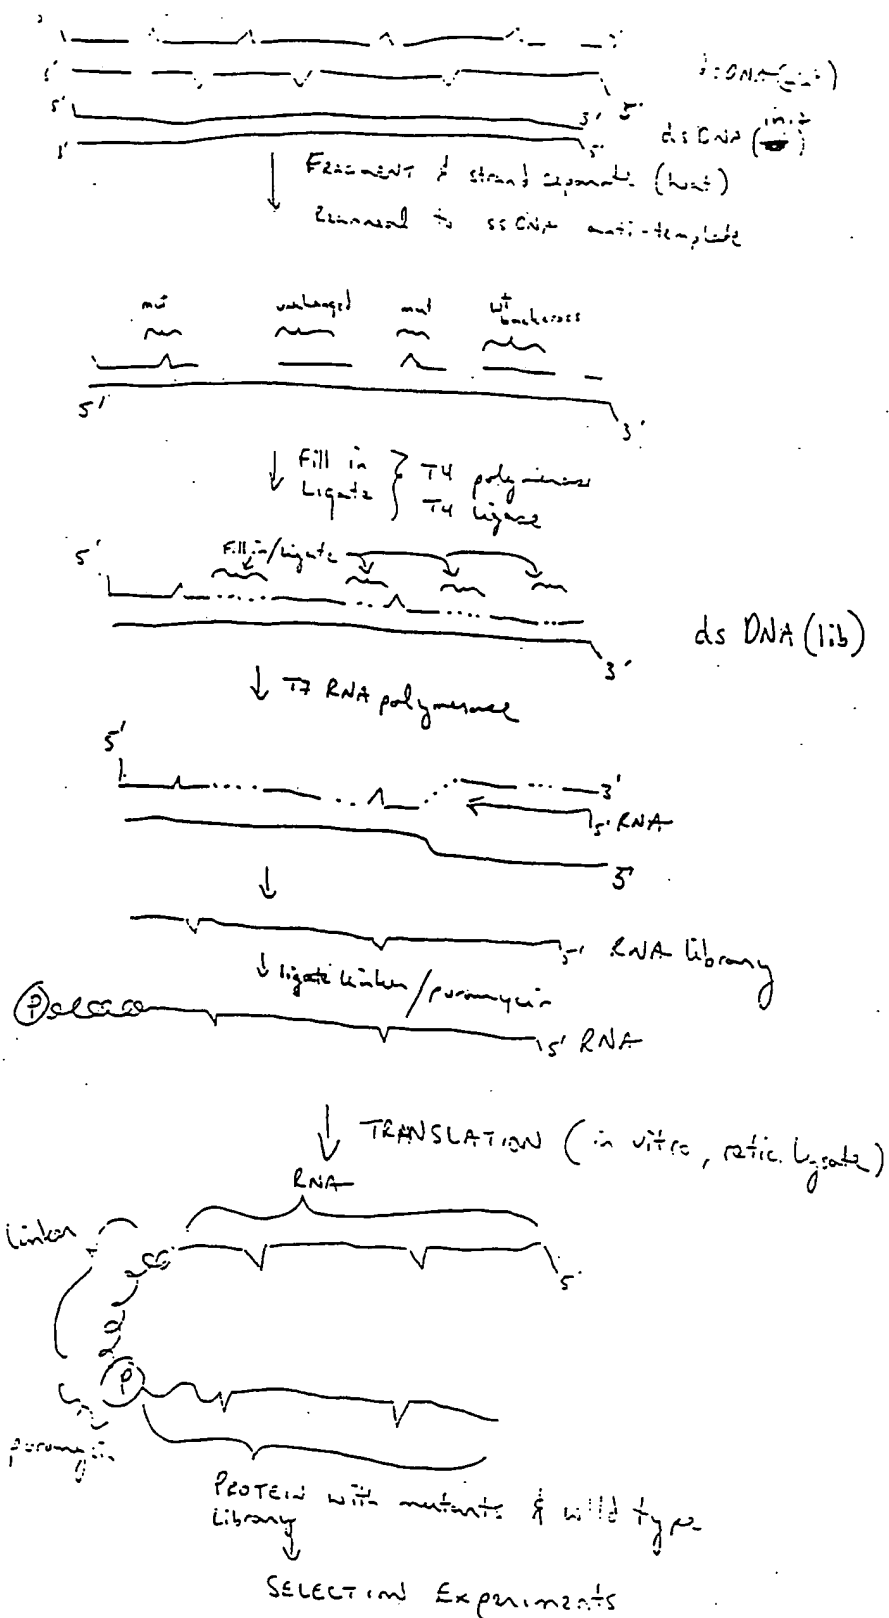 5'
3'
5'
3'
5'
dsDNA (init)
3'
5'
FRAGMENT & strand separate (heat)
Reanneal to ssDNA anti-template
mut unchanged mut wt backcross
5'
3'
Fill in } T4 polymerase
Ligate } T4 ligase
5'
Fill in/Ligate
ds DNA (lib)
3'
T7 RNA polymerase
5'
3'
5' RNA
3'
5' RNA library
ligate linker/puromycin
P
5' RNA
TRANSLATION (in vitro, retic. lysate)
RNA
linker
5'
P
puromycin
PROTEIN with mutants & wild type
Library
SELECTION Experiments